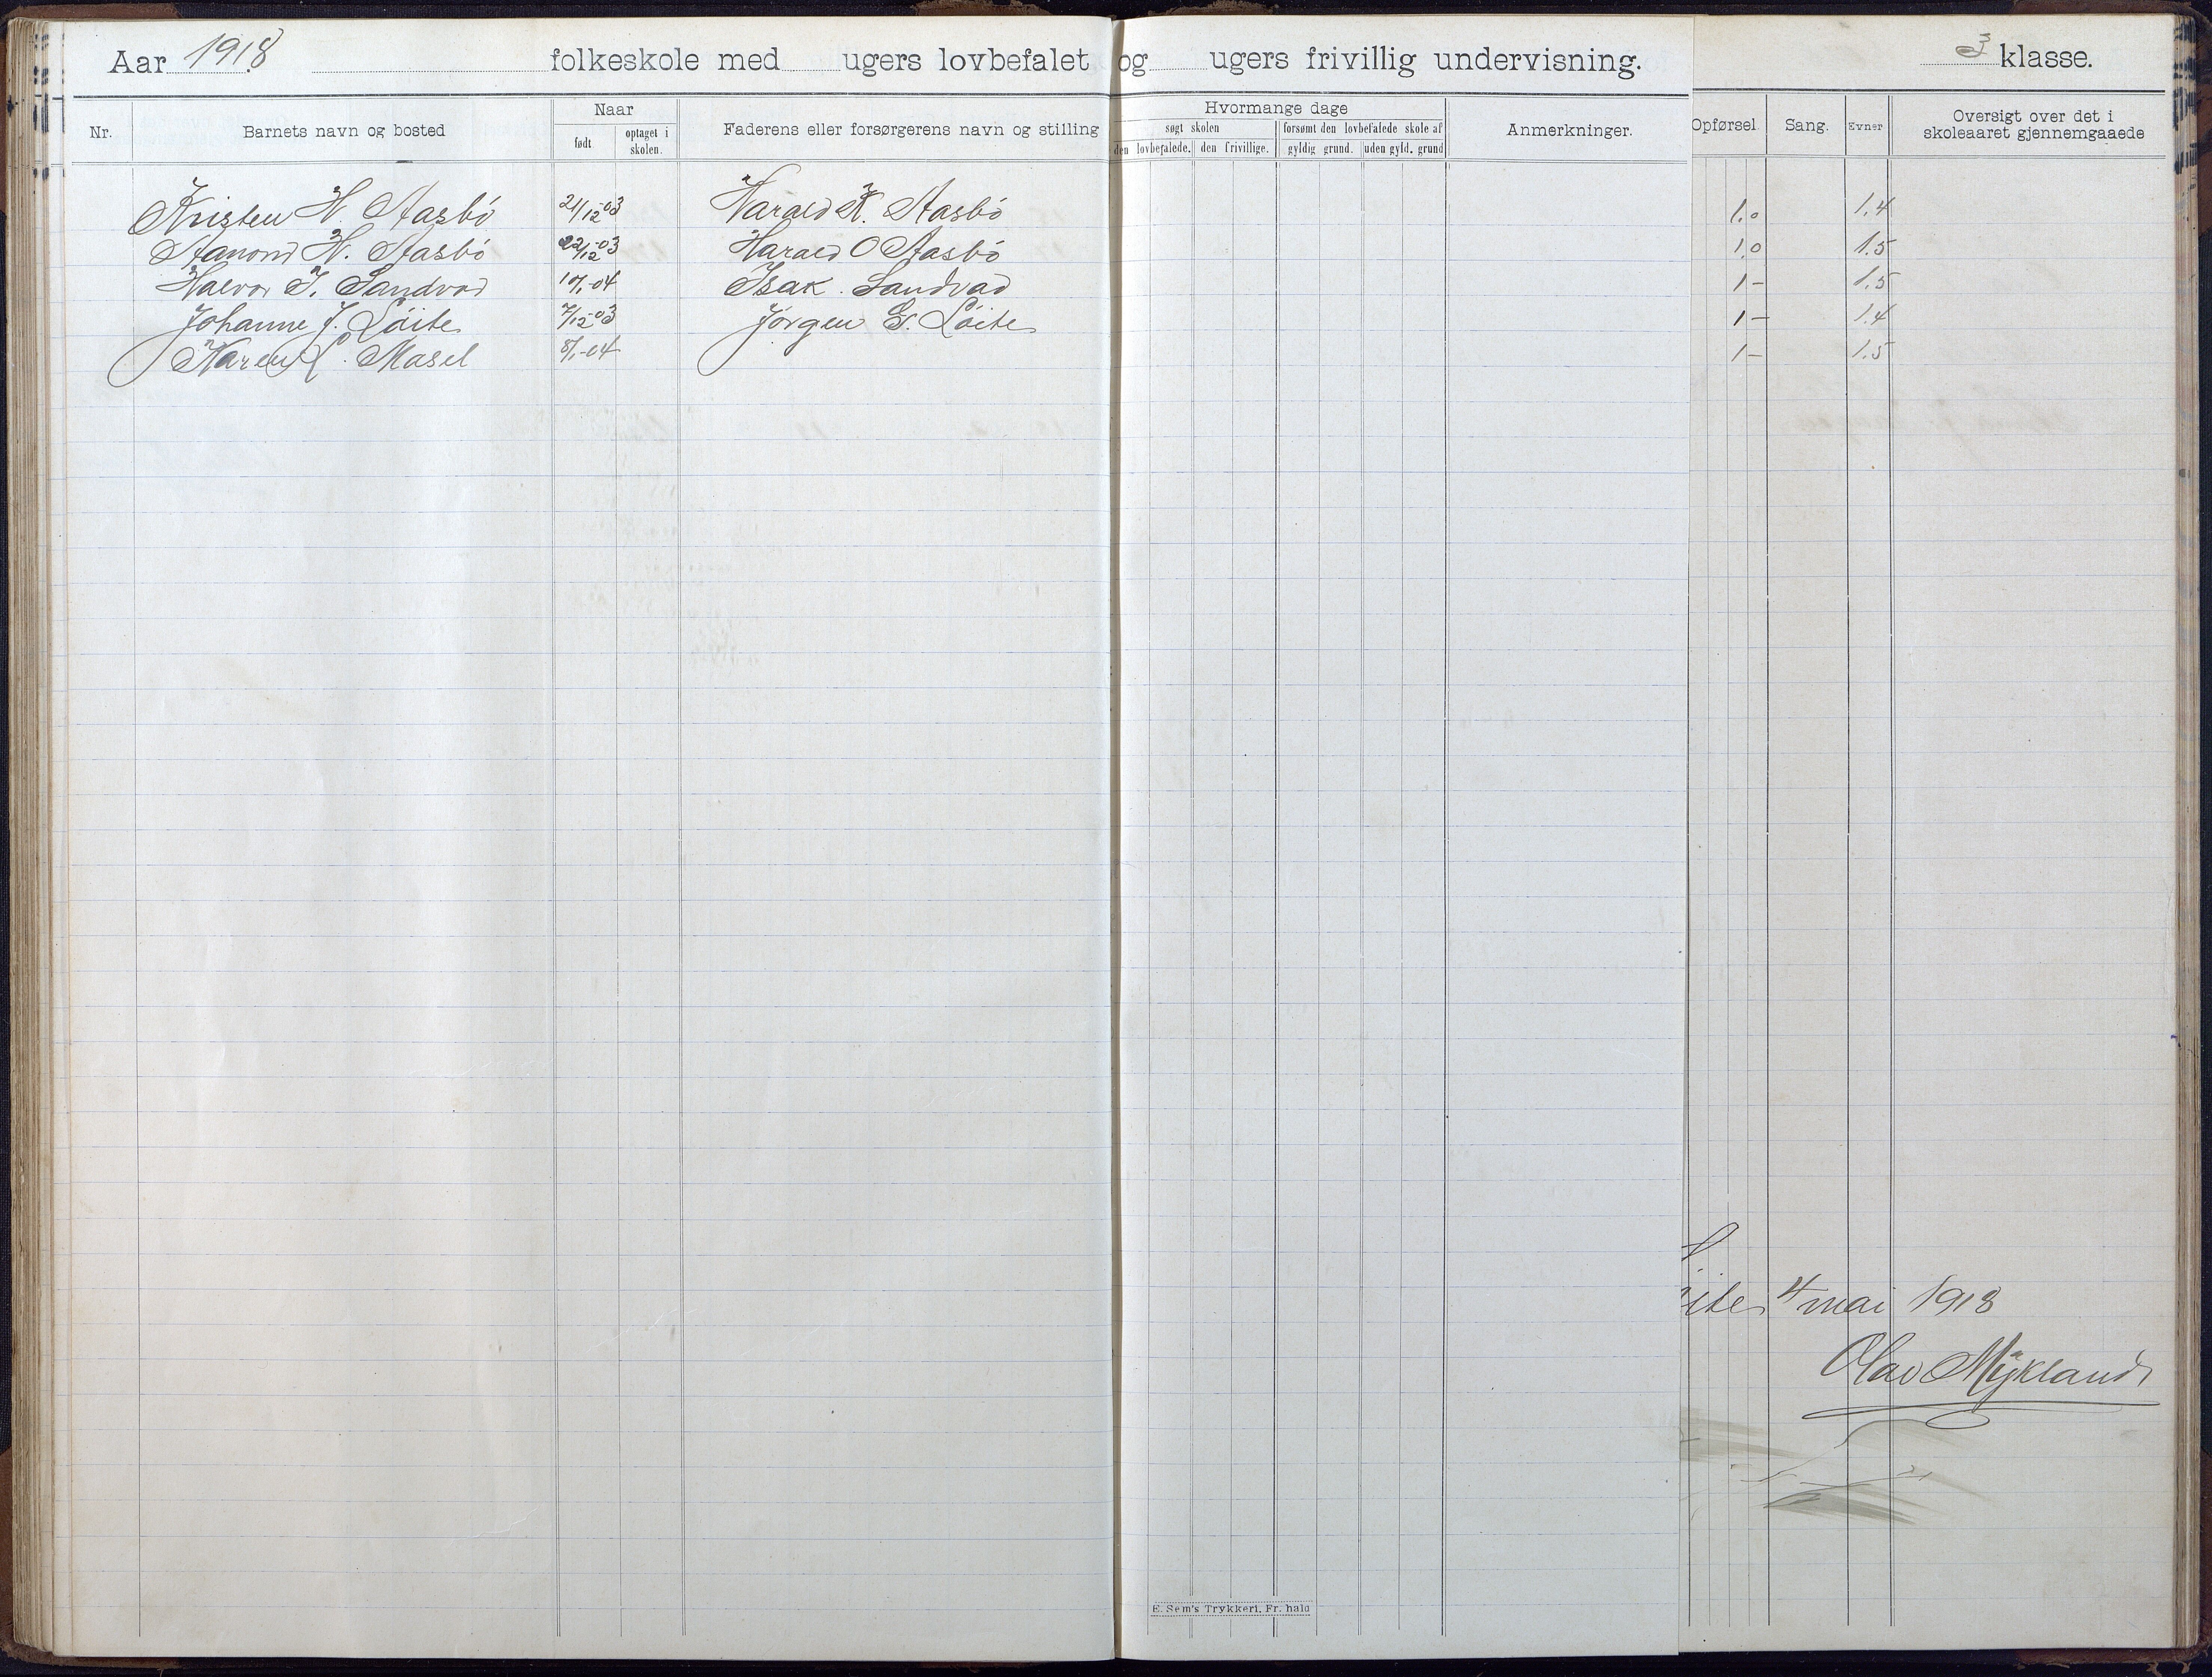 Aar 1918. folkeskole med ugers lovbefalet og ugers frivillig undervisning. 3 klasse.
Nr. Barnets navn og bosted Naar født optaget i skolen. Faderens eller forsørgerens navn og stilling
Hvormange dage søgt skolen den lovbefalede. den frivillige. forsømt den lovbefalede skole af gyldig grund. uden gyld. grund Anmerkninger.
Opførsel Sang. Evner Oversigt over det i skoleaaret gjennemgaaede
Kristen H. Aasbö 21/12-03 Harald K. Aasbö 1.0 1.4
Aamond H. Aasbö 22/12-03 Harald O Aasbö 1.0 1.5
Halvor I. Sandvad 10/1-04 Isak. Sandvad 1- 1.5
Johanne J. Löite 7/12-03 Jörgen G. Löite 1- 1.4
Karen Masel 8/1-04 1- 1.5
4 mai 1918
Olav Mykland
E. Sem's Trykkeri, Fr. hald